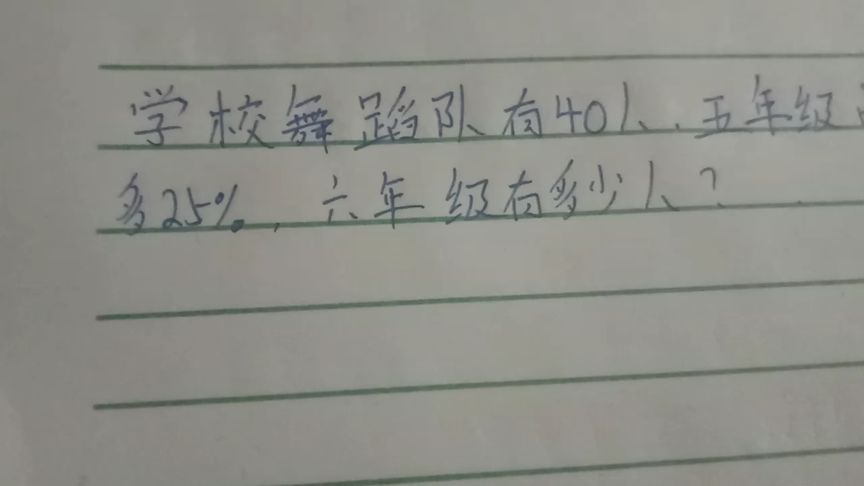 学校舞蹈队有40人，五年级
多25%，六年级有多少人？